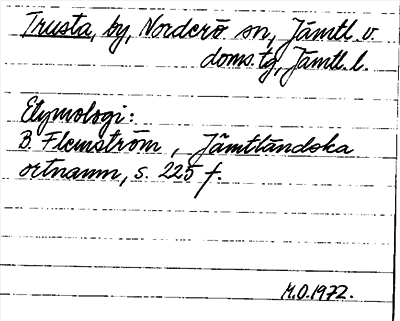 Trusta, by, Norderö sn, Jämtl. v.
doms.tg, Jämtl. l.
Etymologi:
B. Flemström, Jämtländska
ortnamn, s. 225 f.
M.O. 1972.